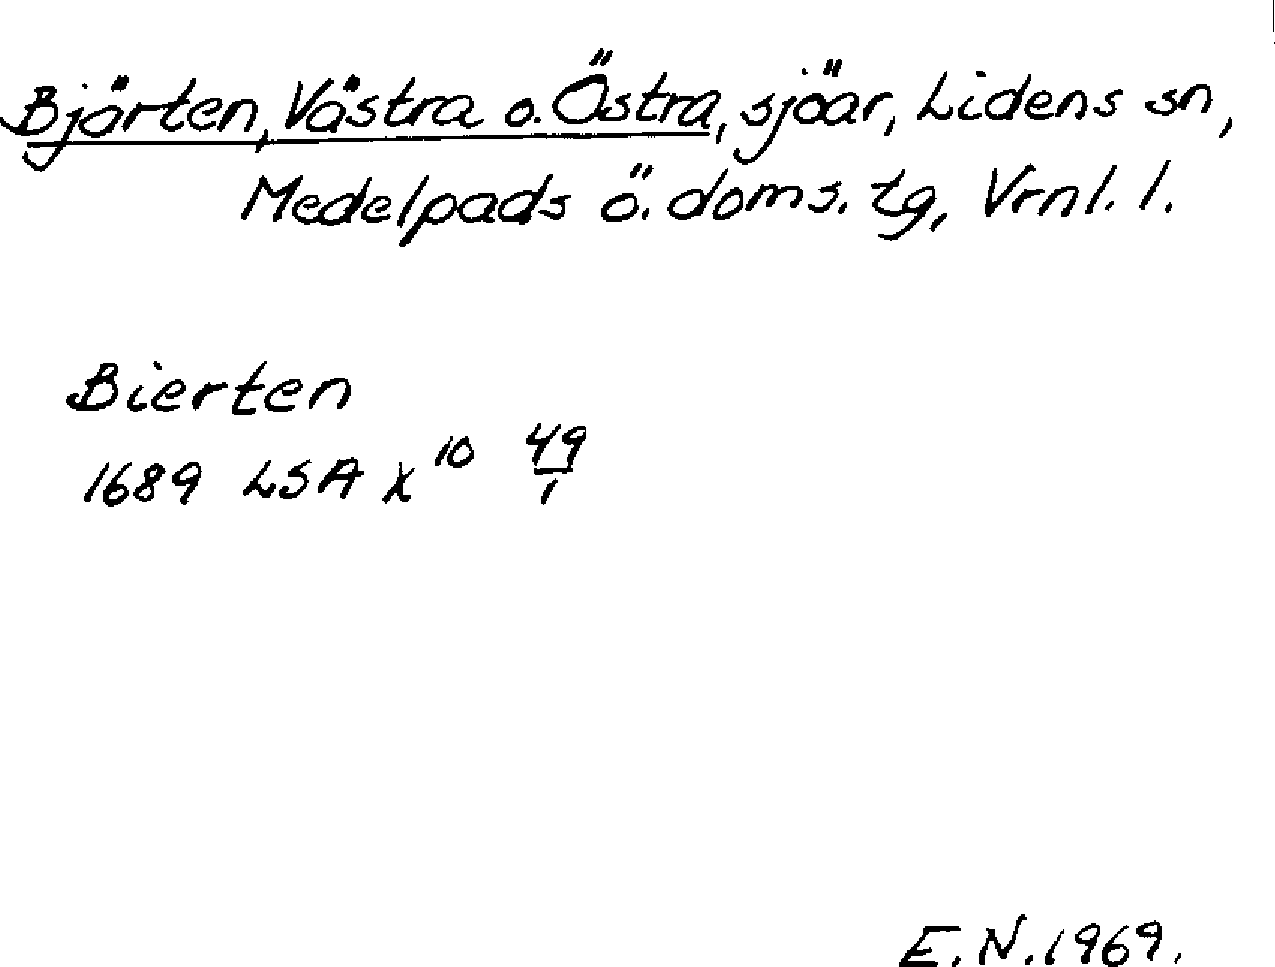 Bjärten, Västra o. Östra, sjöar, Lidens sn,
Medelpads ö. doms. tg, Vrnl. l.
Bierten
1689 LSA X 10 49/1
E. N. 1969.